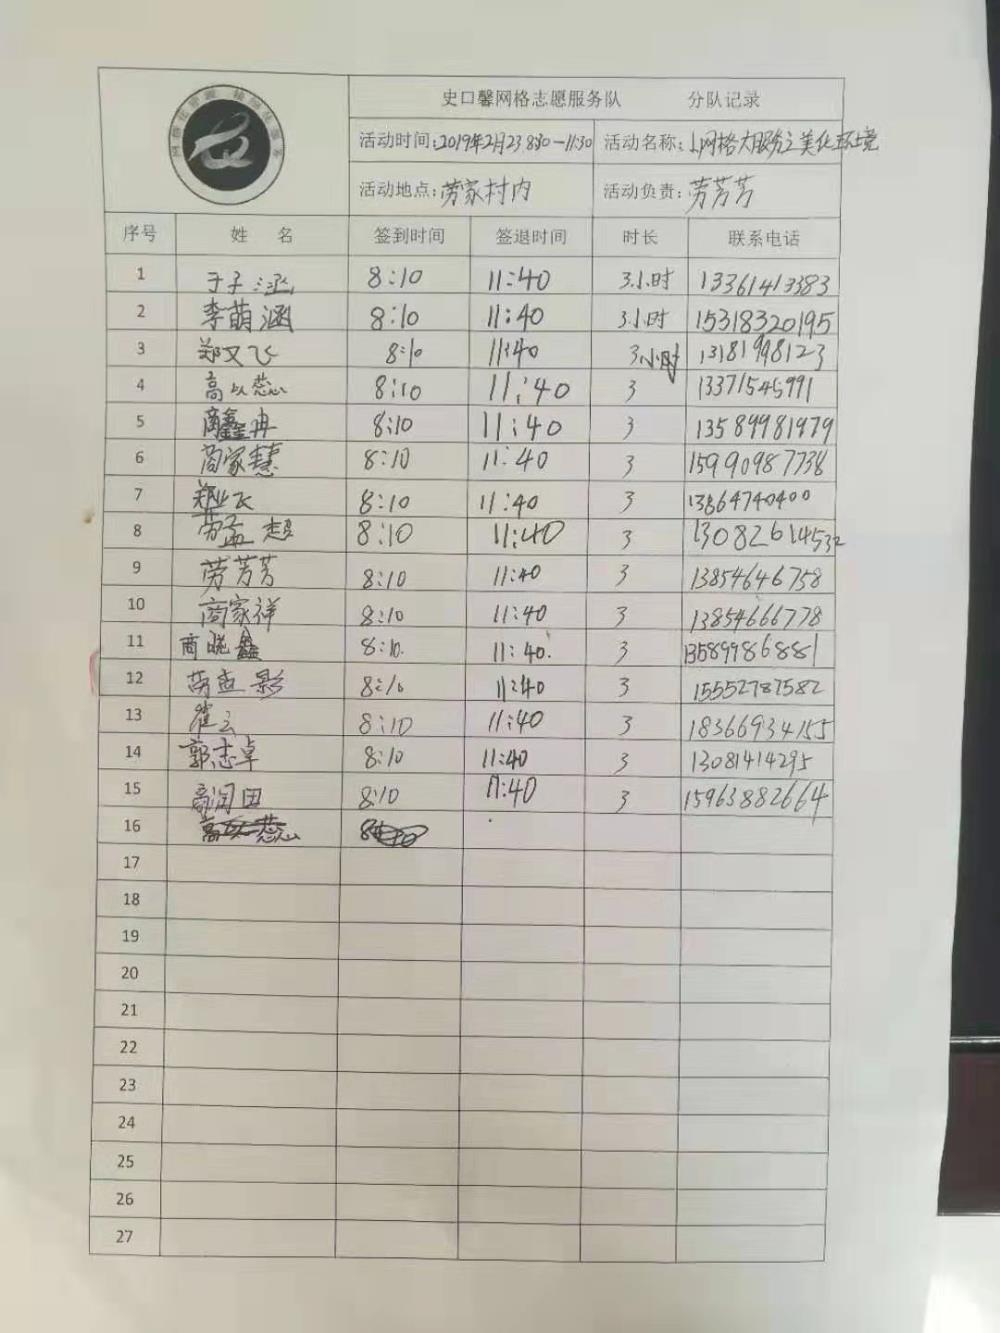 史口馨网格志愿服务队 分队记录
活动时间:2019年2月23 8:30-11:30 活动名称:小网格大服务之美化环境
活动地点:劳家村内 活动负责:劳芳芳
序号 姓 名 签到时间 签退时间 时长 联系电话
1 于子涵 8:10 11:40 3小时 13361413383
2 李萌涵 8:10 11:40 3小时 15318320195
3 郑又飞 8:10 11:40 3小时 13181998123
4 高以蕊 8:10 11:40 3 13371545991
5 商鑫冉 8:10 11:40 3 13589981979
6 商家慧 8:10 11:40 3 15990987738
7 郑业飞 8:10 11:40 3 13864740400
8 劳孟超 8:10 11:40 3 13082614532
9 劳芳芳 8:10 11:40 3 13854646758
10 商家祥 8:10 11:40 3 13854666778
11 商晓鑫 8:10. 11:40. 3 13589986881
12 8:10 11:40 3 15552787582
13 崔云 8:10 11:40 3 18366934155
14 郭志卓 8:10 11:40 3 13081414295
15 8:10 11:40 3 15963882664
16
17
18
19
20
21
22
23
24
25
26
27